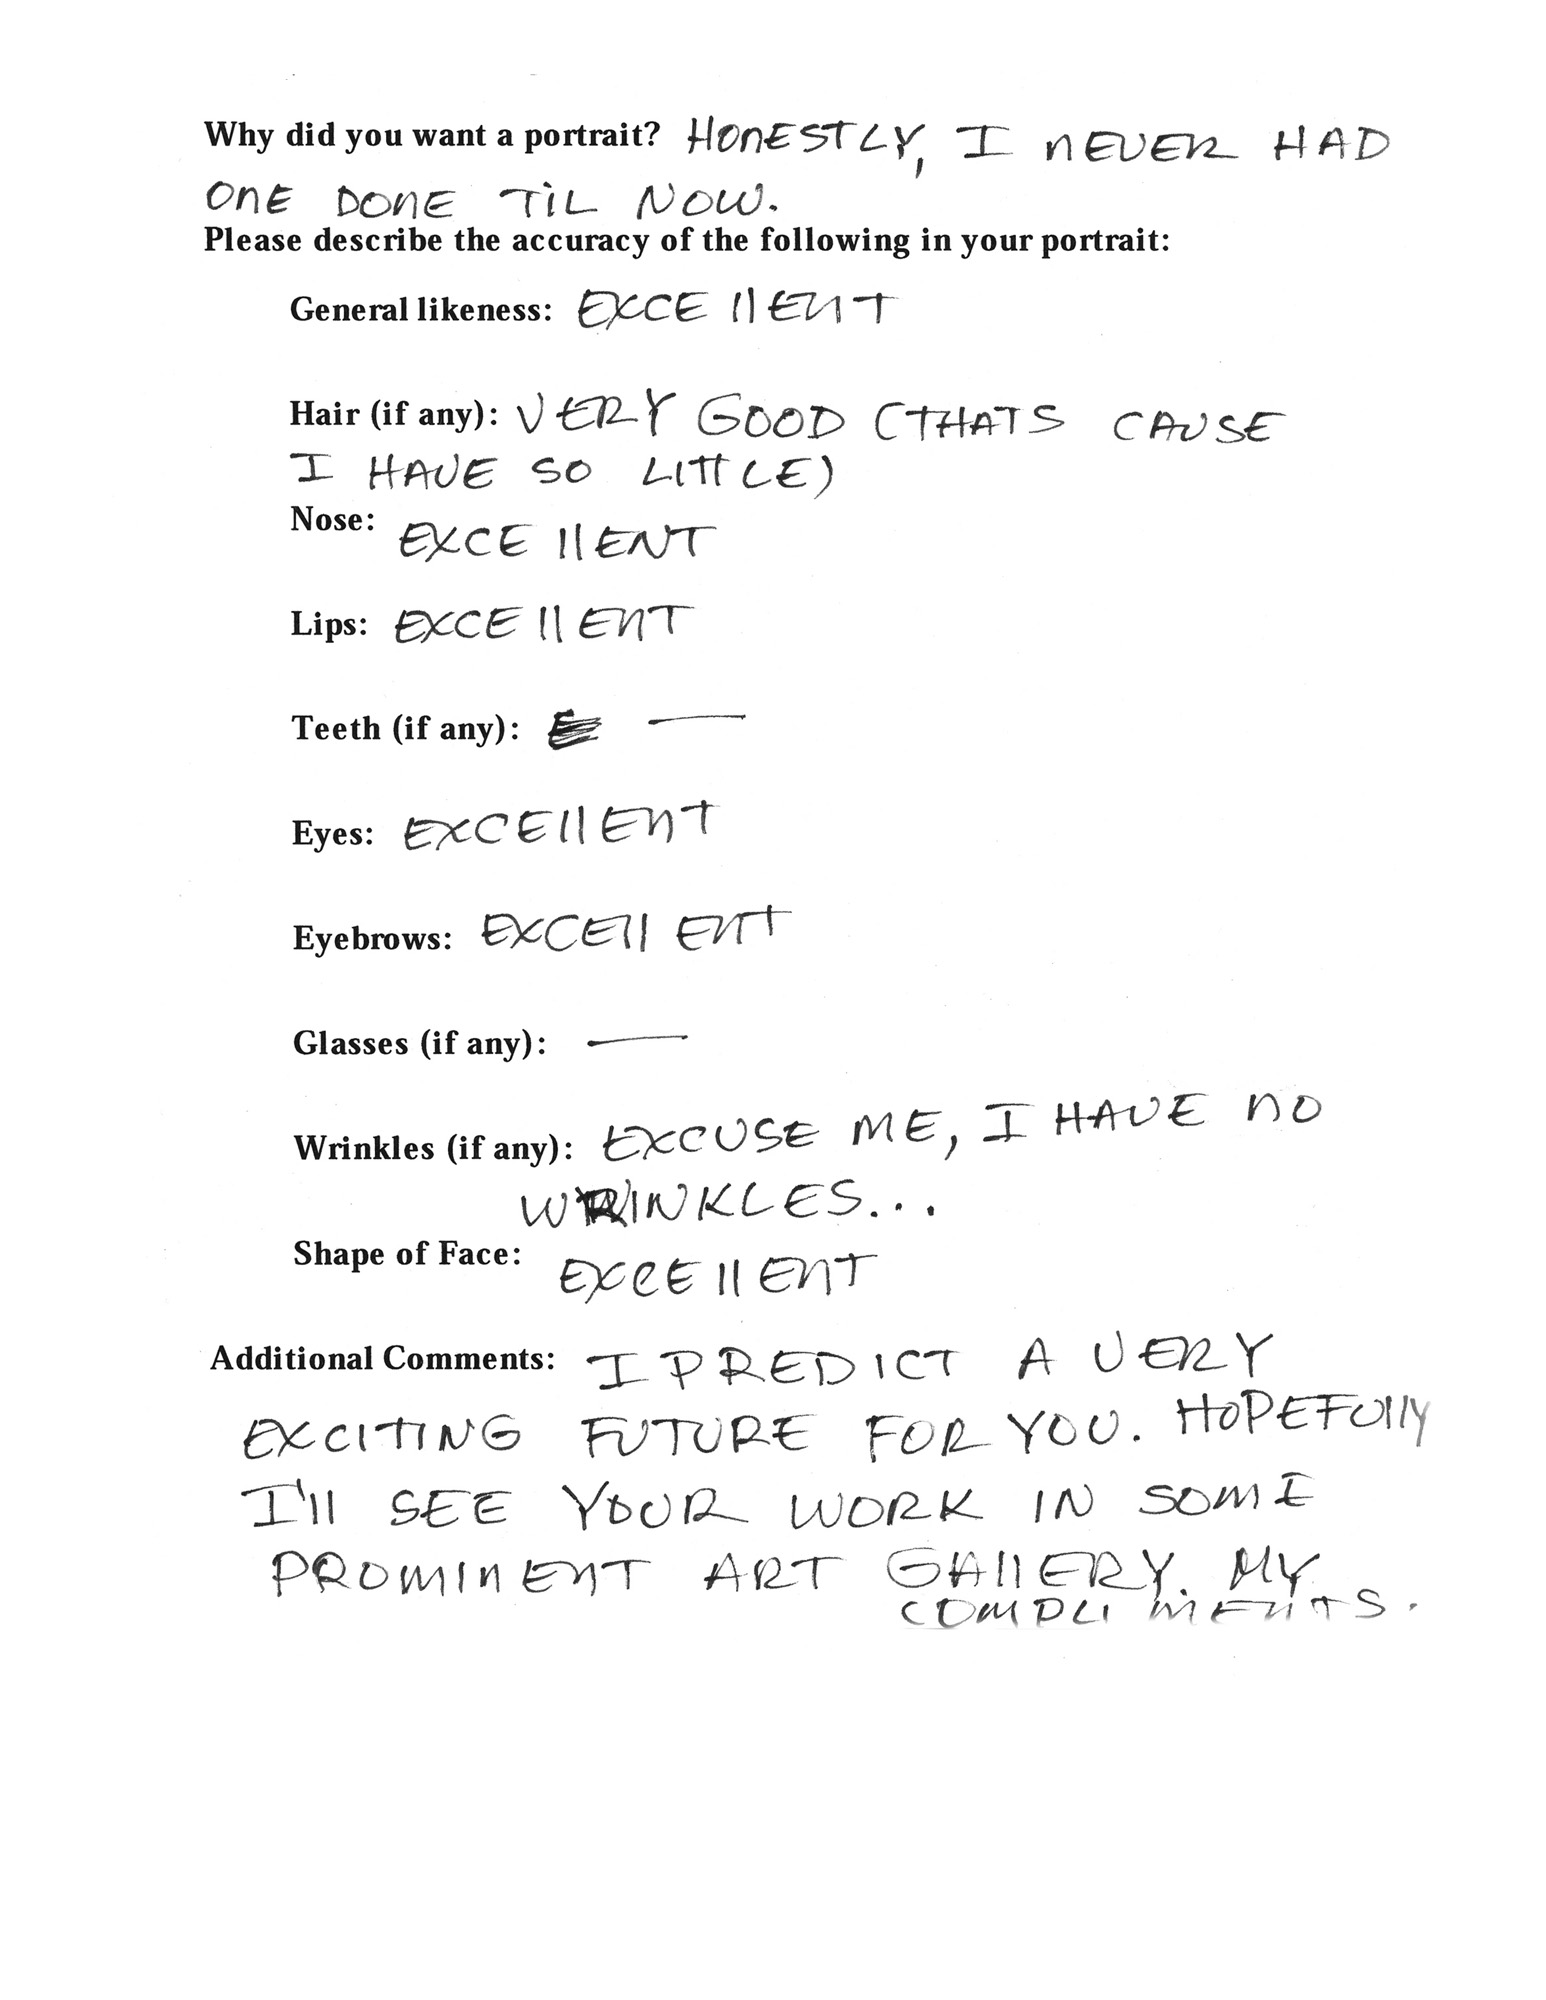 Why did you want a portrait? HONESTLY, I NEVER HAD
ONE DONE TIL NOW.
Please describe the accuracy of the following in your portrait:
General likeness: EXCELLENT
Hair (if any): VERY GOOD (THATS CAUSE
I HAVE SO LITTLE)
Nose: EXCELLENT
Lips: EXCELLENT
Teeth (if any): —
Eyes: EXCELLENT
Eyebrows: EXCELLENT
Glasses (if any): —
Wrinkles (if any): EXCUSE ME, I HAVE NO
WRINKLES...
Shape of Face: EXCELLENT
Additional Comments: I PREDICT A VERY
EXCITING FUTURE FOR YOU. HOPEFULLY
I'll SEE YOUR WORK IN SOME
PROMINENT ART GALLERY. MY
COMPLIMENTS.